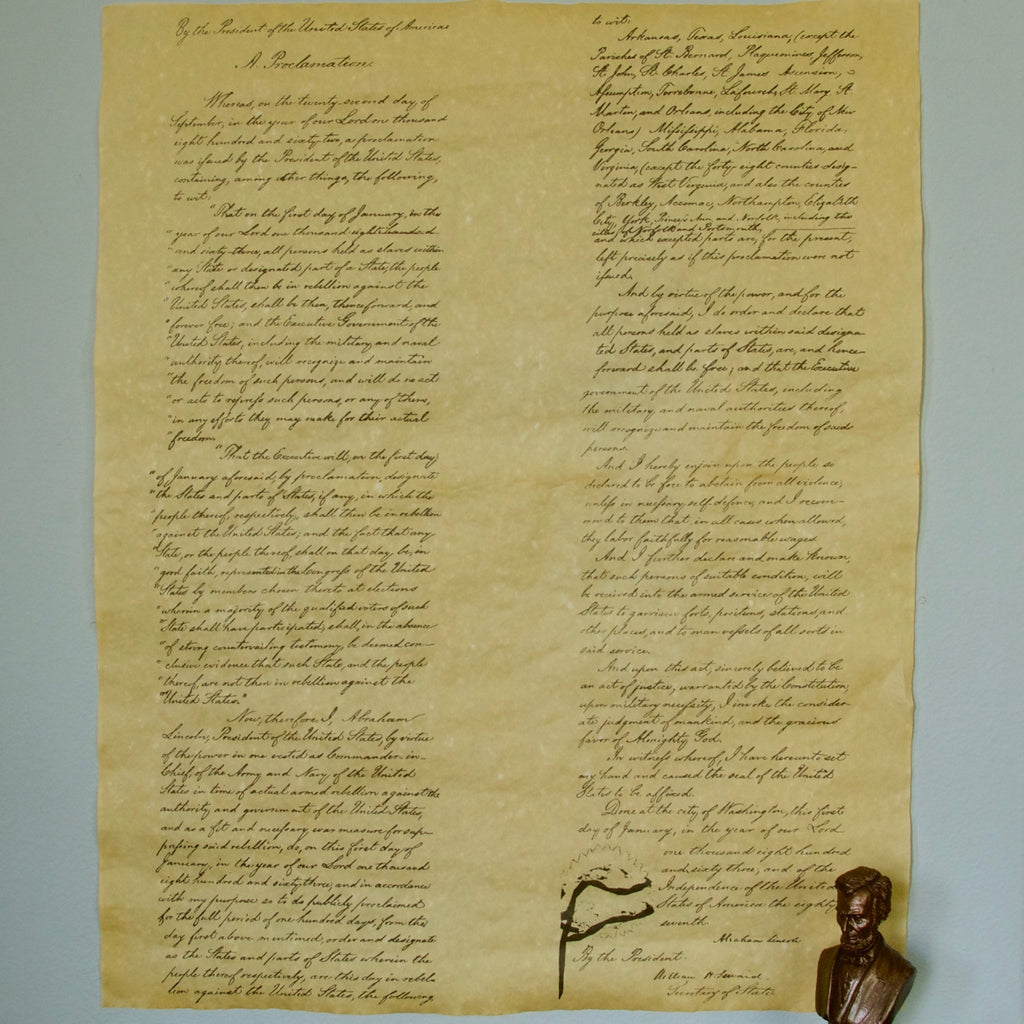 By the President of the United States of America
A Proclamation.
Whereas, on the twenty-second day of
September, in the year of our Lord one thousand
eight hundred and sixty-two, a proclamation
was issued by the President of the United States,
containing, among other things, the following,
to wit:
"That on the first day of January, in the
"year of our Lord one thousand eight hundred
"and sixty-three, all persons held as slaves within
"any State or designated part of a State, the people
"whereof shall then be in rebellion against the
"United States, shall be then, thenceforward, and
"forever free; and the Executive Government of the
"United States, including the military and naval
"authority thereof, will recognize and maintain
"the freedom of such persons, and will do no act
"or acts to repress such persons, or any of them,
"in any efforts they may make for their actual
"freedom.
"That the Executive will, on the first day
"of January aforesaid, by proclamation, designate
"the States and parts of States, if any, in which the
"people thereof, respectively, shall then be in rebellion
"against the United States; and the fact that any
"State, or the people thereof, shall on that day be, in
"good faith, represented in the Congress of the United
"States by members chosen thereto at elections
"wherein a majority of the qualified voters of such
"State shall have participated, shall, in the absence
"of strong countervailing testimony, be deemed con-
"clusive evidence that such State, and the people
"thereof, are not then in rebellion against the
"United States."
Now, therefore I, Abraham
Lincoln, President of the United States, by virtue
of the power in me vested as Commander-in-
Chief, of the Army and Navy of the United
States in time of actual armed rebellion against the
authority and government of the United States,
and as a fit and necessary war measure for sup-
pressing said rebellion, do, on this first day of
January, in the year of our Lord one thousand
eight hundred and sixty three, and in accordance
with my purpose so to do publicly proclaimed
for the full period of one hundred days, from the
day first above mentioned, order and designate
as the States and parts of States wherein the
people thereof respectively, are this day in rebel-
lion against the United States, the following
to wit:
Arkansas, Texas, Louisiana, (except the
Parishes of St. Bernard, Plaquemines, Jefferson,
St. John, St. Charles, St. James Ascension,
Assumption, Terrebonne, Lafourche, St. Mary, St.
Martin, and Orleans, including the City of New
Orleans) Mississippi, Alabama, Florida,
Georgia, South Carolina, North Carolina, and
Virginia, (except the forty-eight counties desig-
nated as West Virginia, and also the counties
of Berkley, Accomac, Northampton, Elizabeth
City, York, Princess Ann, and Norfolk, including the
cities of Norfolk and Portsmouth,
and which excepted parts are, for the present,
left precisely as if this proclamation were not
issued.
And by virtue of the power, and for the
purpose aforesaid, I do order and declare that
all persons held as slaves within said designa-
ted States, and parts of States, are, and hence-
forward shall be free; and that the Executive
government of the United States, including
the military and naval authorities thereof,
will recognize and maintain the freedom of said
persons.
And I hereby enjoin upon the people so
declared to be free to abstain from all violence,
unless in necessary self-defence; and I recom-
mend to them that, in all cases when allowed,
they labor faithfully for reasonable wages.
And I further declare and make known,
that such persons of suitable condition, will
be received into the armed service of the United
States to garrison forts, positions, stations, and
other places, and to man vessels of all sorts in
said service.
And upon this act, sincerely believed to be
an act of justice, warranted by the Constitution,
upon military necessity, I invoke the consider-
ate judgment of mankind, and the gracious
favor of Almighty God.
In witness whereof, I have hereunto set
my hand and caused the seal of the United
States to be affixed.
Done at the city of Washington, this first
day of January, in the year of our Lord
one thousand eight hundred
and sixty three, and of the
Independence of the United
States of America the eighty-
seventh.
Abraham Lincoln
By the President:
William H. Seward,
Secretary of State.